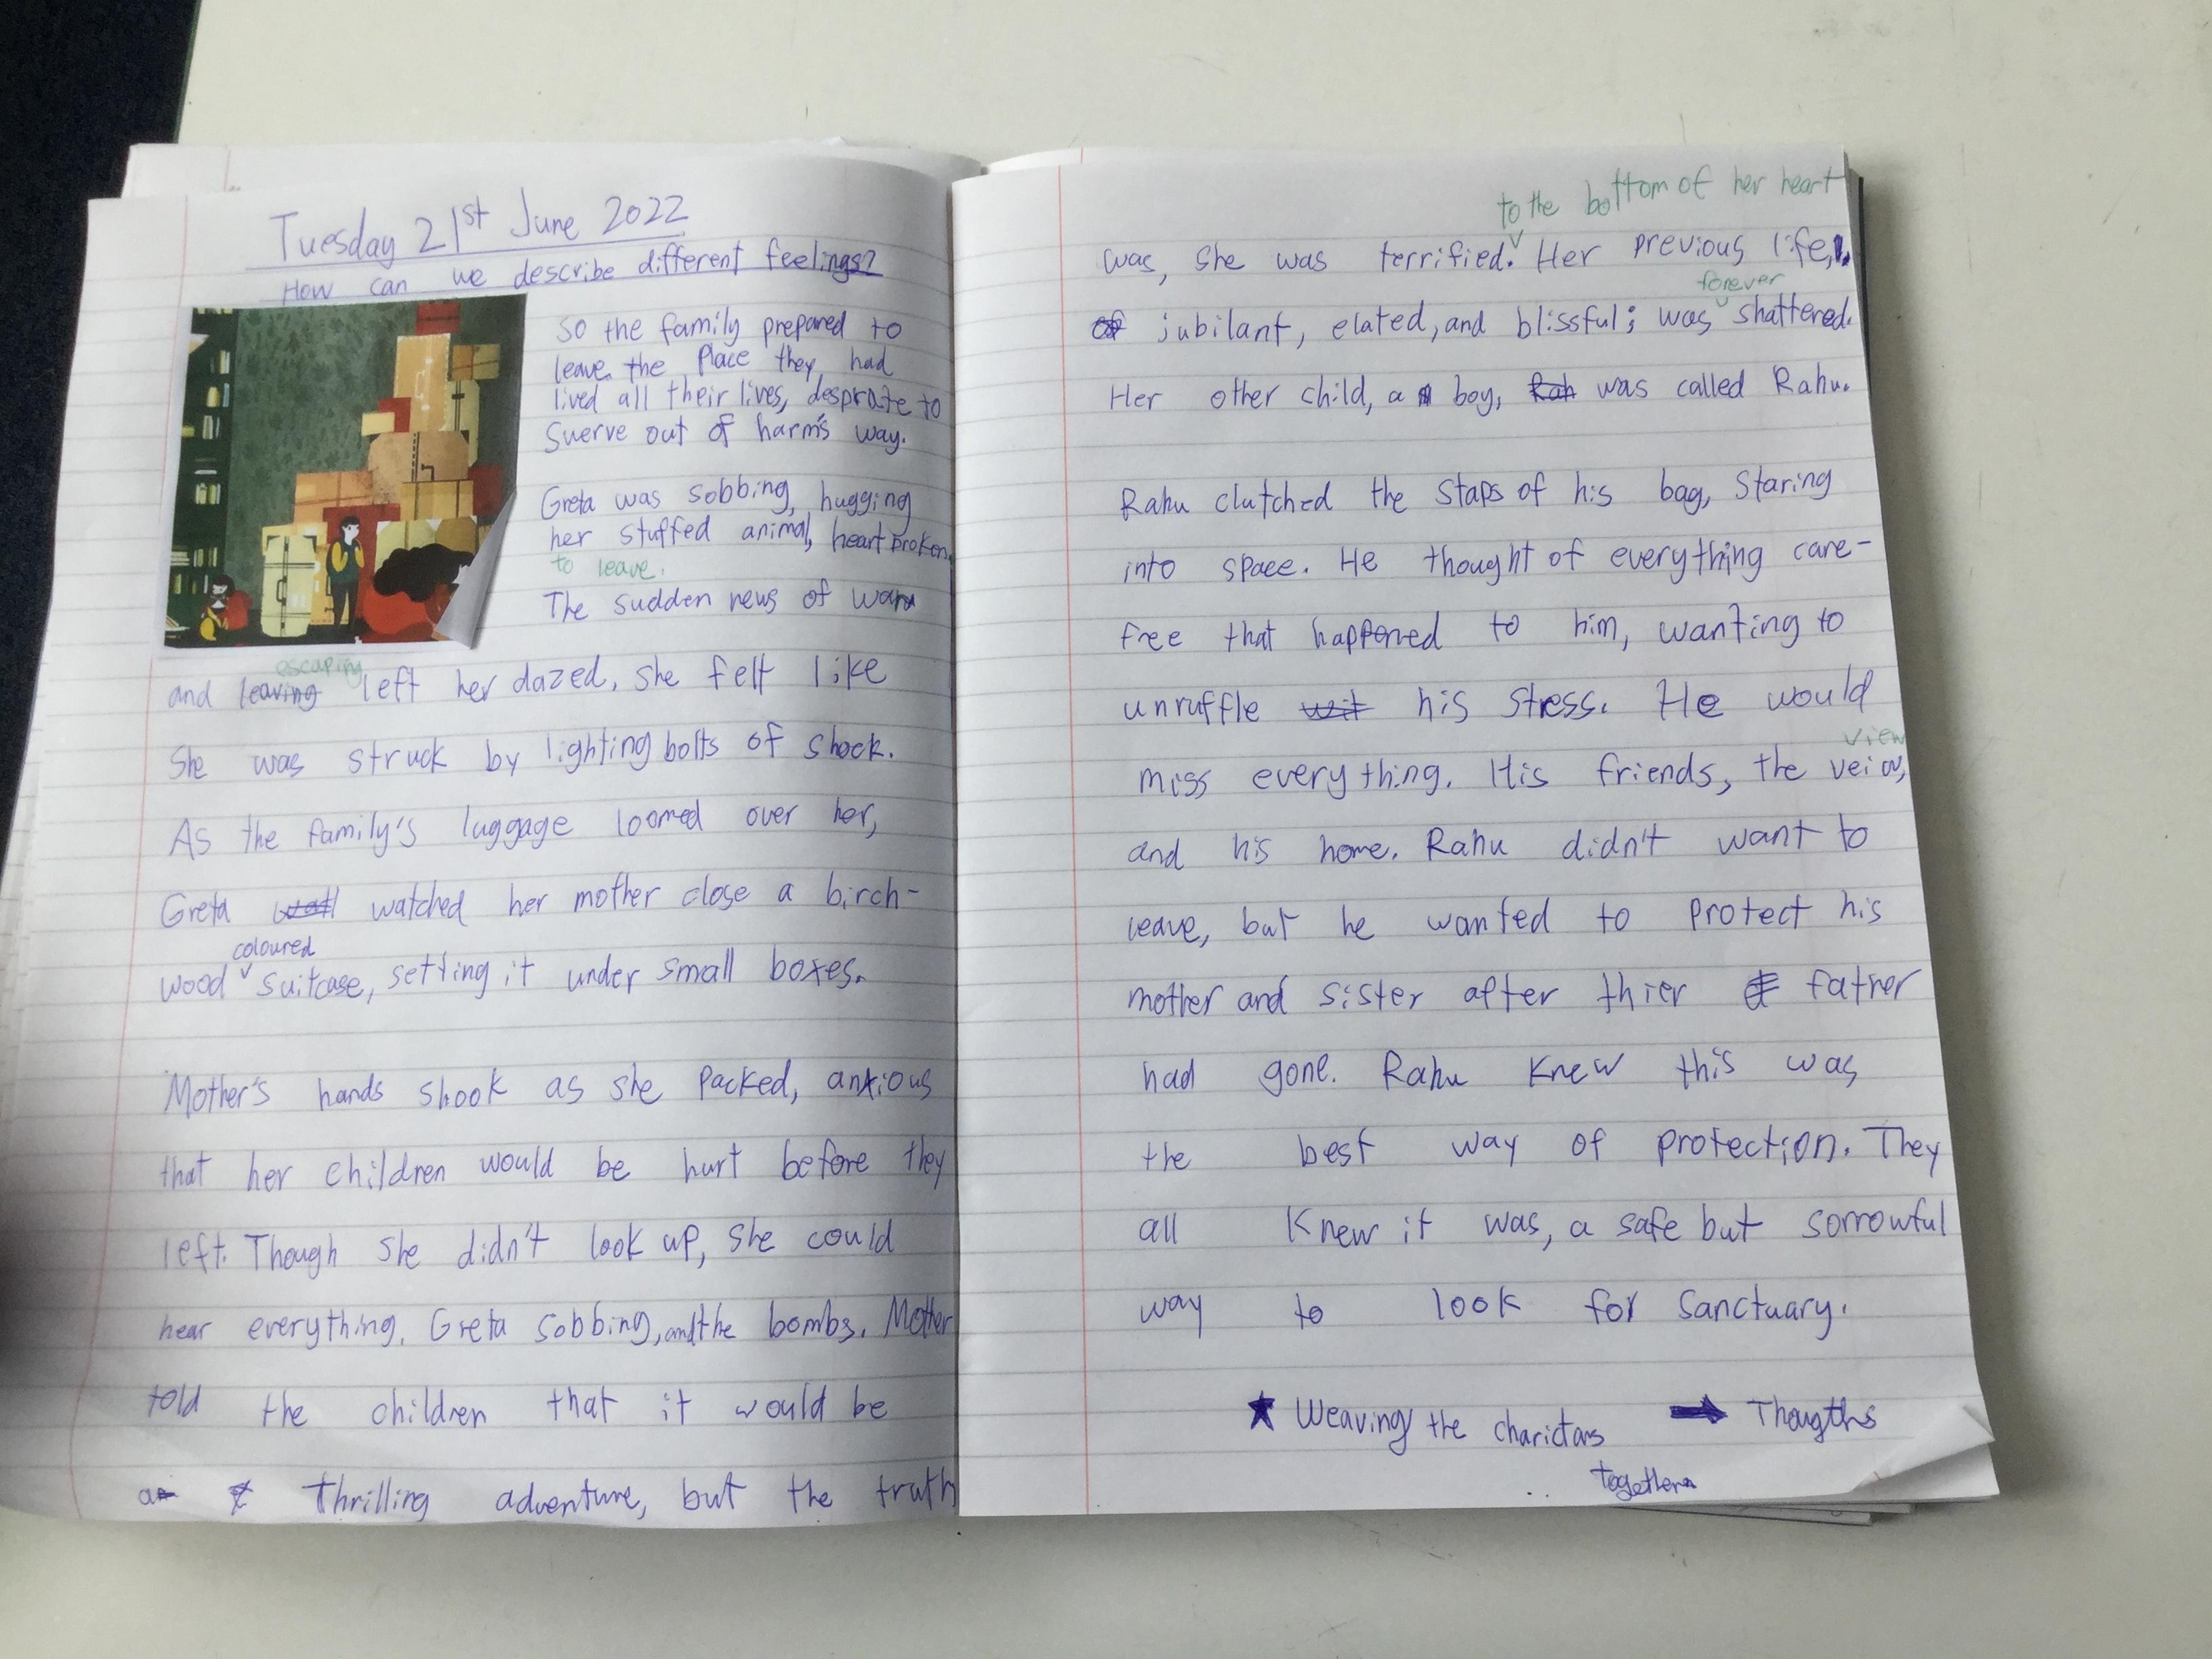 Tuesday 21st June 2022
How can we describe different feelings?
so the family prepared to
leave the place they had
lived all their lives, desprate to
swerve out of harm's way.
Greta was sobbing, hugging
her stuffed animal, heart broken
to leave.
The sudden news of war
escaping
and leaving left her dazed, she felt like
she was struck by lighting bolts of shock.
As the family's luggage loomed over her,
Greta watched her mother close a birch-
coloured
wood suitcase, setting it under small boxes.
Mother's hands shook as she packed, anxious
that her children would be hurt before they
left. Though she didn't look up, she could
hear everything. Greta sobbing, and the bombs. Mother
told the children that it would be
a thrilling adventure, but the truth
to the bottom of her heart
was, she was terrified. Her previous life,
forever
of jubilant, elated, and blissful; was shattered.
Her other child, a boy, Rah was called Rahu.
Rahu clutched the staps of his bag, staring
into space. He thought of everything care-
free that happened to him, wanting to
unruffle wit his stress. He would
view
miss everything. His friends, the veiw,
and his home. Rahu didn't want to
leave, but he wanted to protect his
mother and sister after thier father
had gone. Rahu knew this was
the best way of protection. They
all knew it was, a safe but sorrowful
way to look for sanctuary.
★ Weaving the charictars → Thougths
together